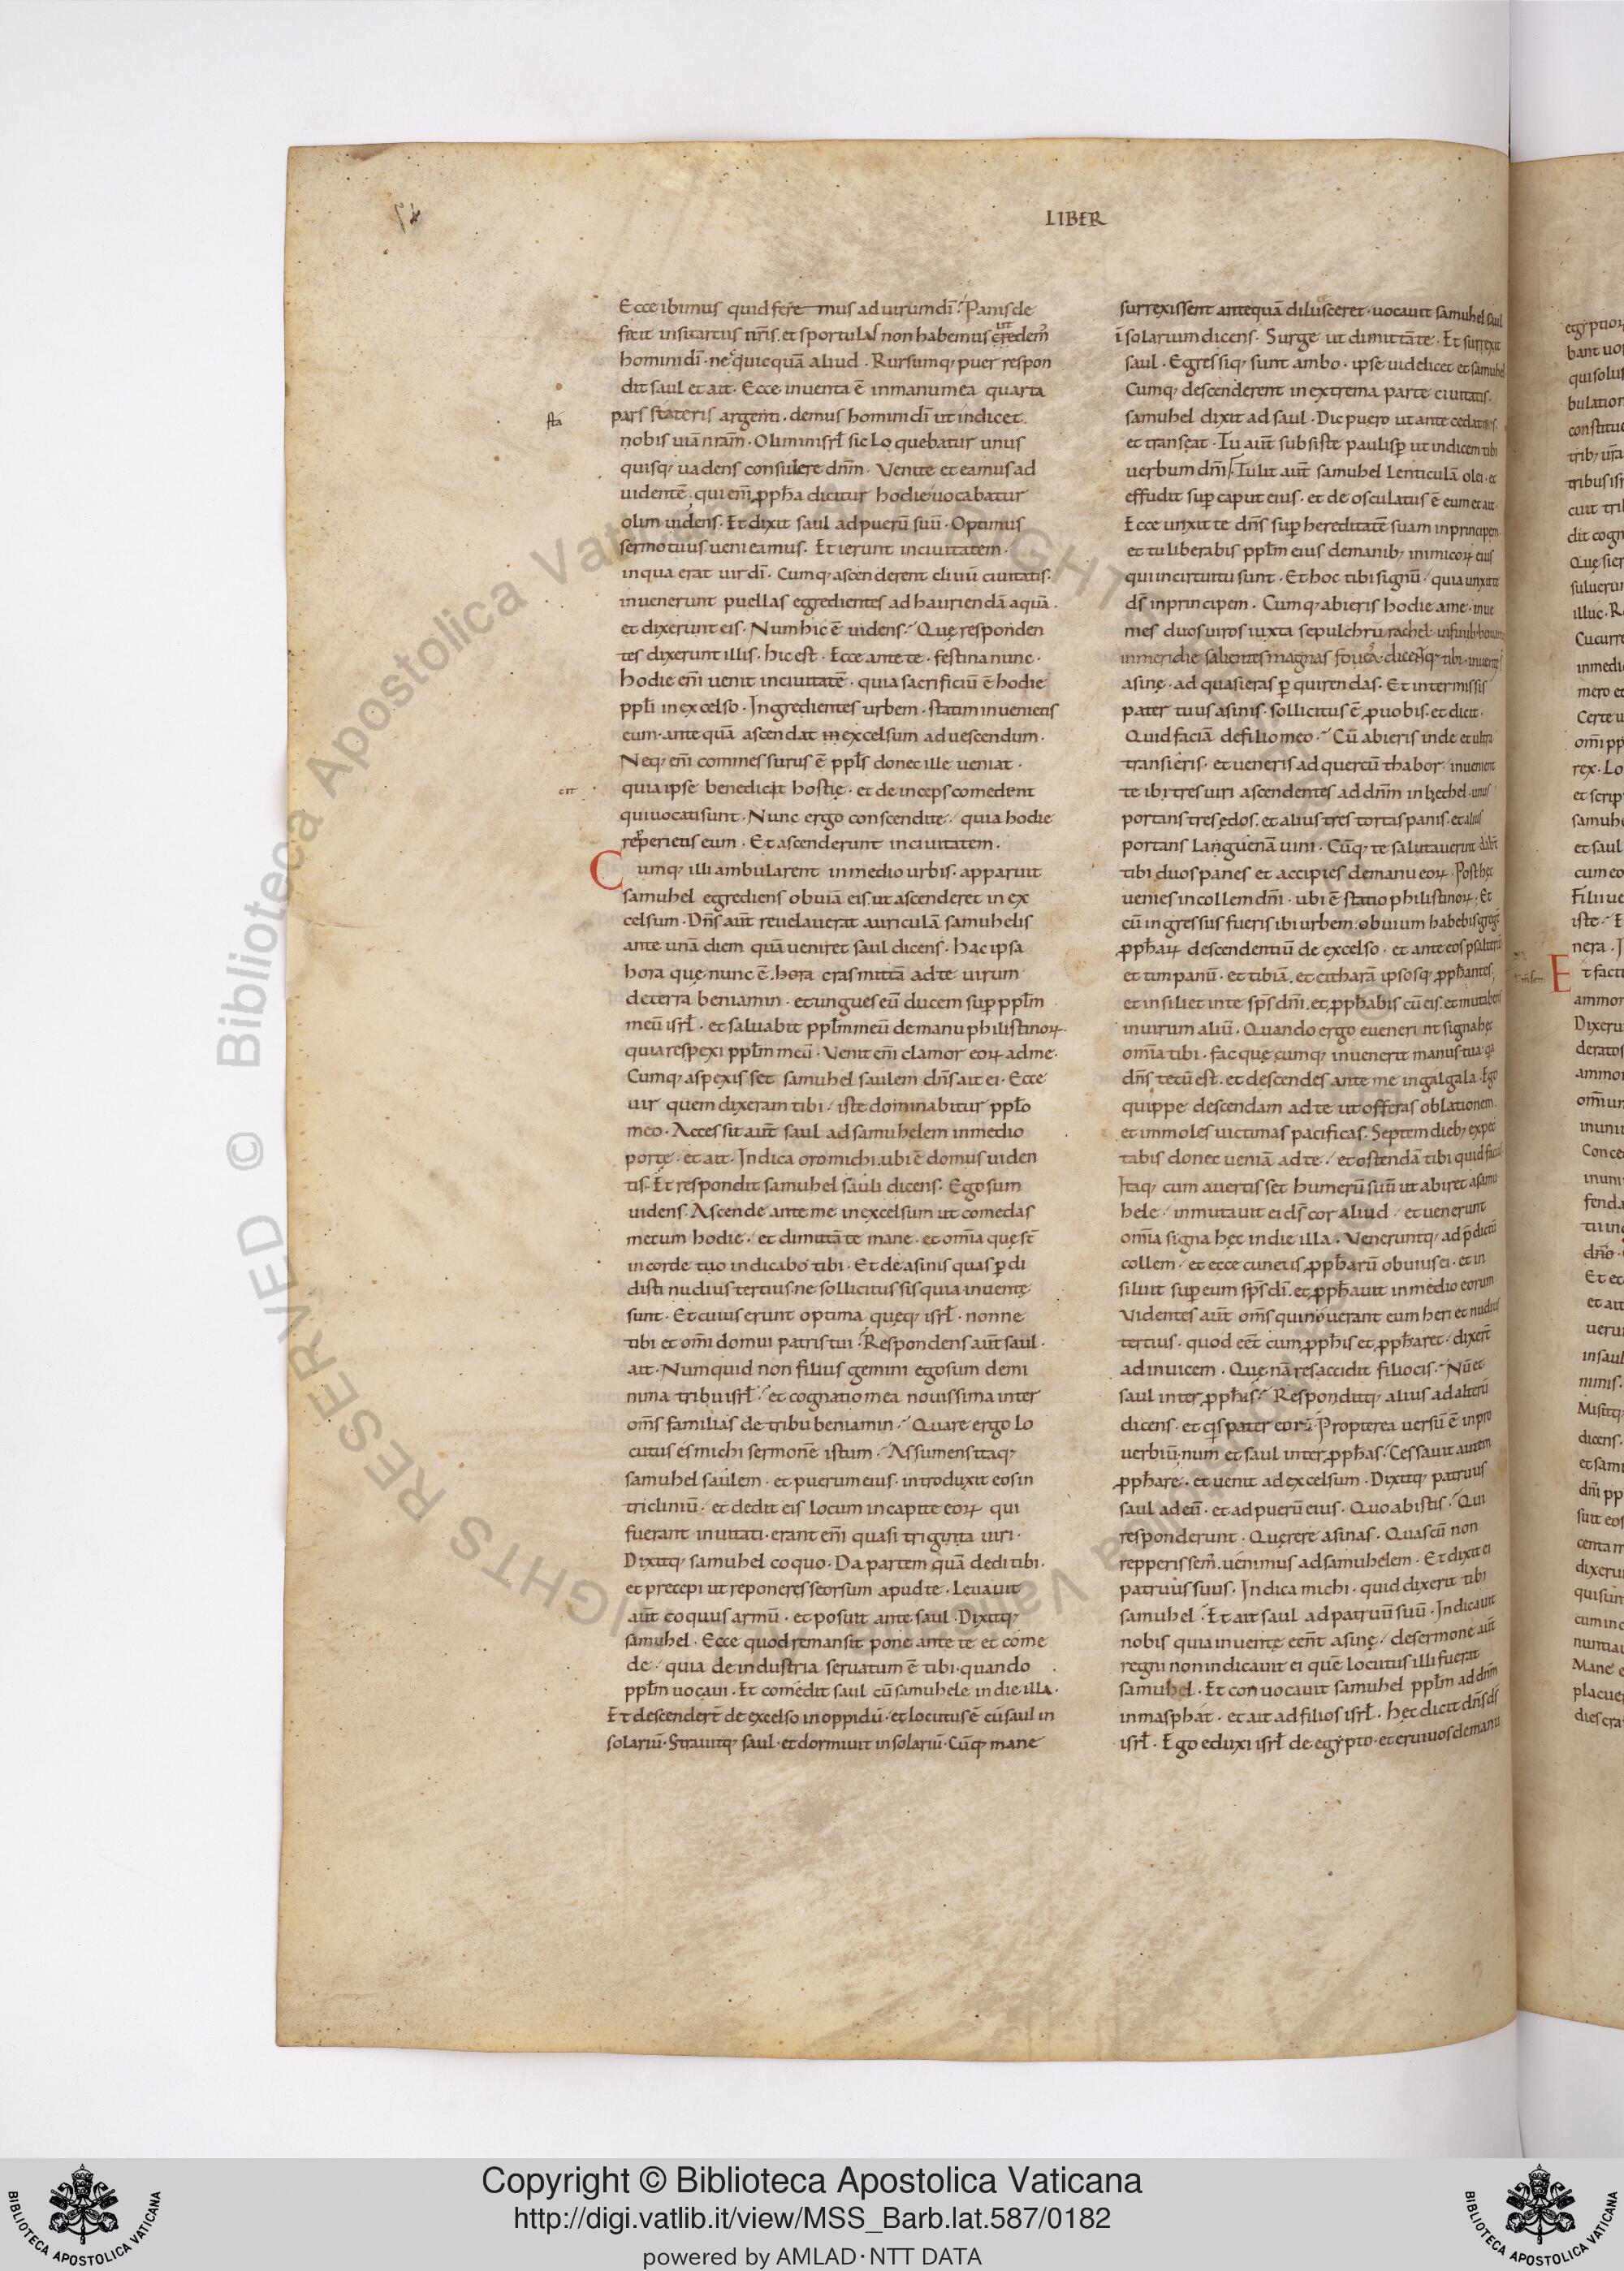 LIBER
Ecce ibimus quid feremus ad uirum dī? Panis de
ficit in sitarciis nr̄is. et sportulā non habemus ut credem᷒
homini dī· nec quicquā aliud · Rursumq; puer respon
dit saul et ait· Ecce inuenta ē in manu mea quarta
pars stateris argenti · demus homini dī ut indicet
nobis uiā nrām · Olim in isrł sic loquebatur unus
quisq; uadens consulere dnm̄ · Venite et eamus ad
uidentē · qui enī ꝓpħa dicitur hodie uocabatur
olim uidens · Et dixit saul ad puerū suū · Optimus
sermo tuus ueni eamus · Et ierunt in ciuitatem ·
in qua erat uir dī · Cumq; ascenderent cliuū ciuitatis·
inuenerunt puellas egredientes ad hauriendā aquā ·
et dixerunt eis · Num hic ē uidens? Quę responden
tes dixerunt illis · hic est · Ecce ante te · festina nunc ·
hodie enī uenit in ciuitatē · quia sacrificiū ē hodie
ppłi in excelso · Ingredientes urbem · statim inuenietis
eum · ante quā ascendat in excelsum ad uescendum ·
Neq; enī commessurus ē ppłs donec ille ueniat ·
quia ipse benedicit hostię · et deinceps comedent
qui uocati sunt · Nunc ergo conscendite · quia hodie
reperietis eum · Et ascenderunt in ciuitatem ·
Cumq; illi ambularent in medio urbis · apparuit
samuhel egrediens obuiā eis · ut ascenderet in ex
celsum · Dn̄s aut̄ reuelauerat auriculā samuhelis
ante unā diem quā ueniret saul dicens · Hac ipsa
hora quę nunc ē · hora cras mittā ad te uirum
de terra beniamin · et ungues eū ducem sup̱ ppłm
meū isrł · et saluabit ppłm meū de manu philistinoꝝ ·
quia respexi ppłm meū · Venit enī clamor eoꝝ ad me ·
Cumq; aspexisset samuhel saulem dn̄s ait ei · Ecce
uir quem dixeram tibi · iste dominabitur ppło
meo · Accessit aut̄ saul ad samuhelem in medio
portę · et ait · Indica oro michi · ubi ē domus uiden
tis · Et respondit samuhel sauli dicens · Ego sum
uidens · Ascende ante me in excelsum ut comedas
mecum hodie · et dimittā te mane · et om̄ia quę st̄
in corde tuo indicabo tibi · Et de asinis quas p̱di
disti nudius tertius · ne sollicitus sis quia inuentę
sunt · Et cuius erunt optima quęq; isrł · nonne
tibi et om̄i domui patris tui? Respondens aut̄ saul ·
ait · Numquid non filius gemini ego sum de mi
nima tribu isrł · et cognatio mea nouissima inter
om̄s familias de tribu beniamin? Quare ergo lo
cutus es michi sermonē istum? Assumens itaq;
samuhel saulem · et puerum eius · introduxit eos in
tricliniū · et dedit eis locum in capite eoꝝ qui
fuerant inuitati · erant enī quasi triginta uiri ·
Dixitq; samuhel coquo · Da partem quā dedi tibi ·
et precepi ut reponeres seorsum apud te · Leuauit
aut̄ coquus armū · et posuit ante saul · Dixitq;
samuhel · Ecce quod remansit pone ante te et come
de · quia de industria seruatum ē tibi · quando
ppłm uocaui · Et comedit saul cū samuhele in die illa ·
Et descendert̄ de excelso in oppidū · et locutus ē cū saul in
solariū · Strauitq; saul · et dormiuit in solariū · Cūq; mane
surrexissent antequā dilusceret · uocauit samuhel saul
ī solarium dicens · Surge ut dimittā te · Et surrexit
saul · Egressiq; sunt ambo · ipse uidelicet et samuhel
Cumq; descenderent in extrema parte ciuitatis ·
samuhel dixit ad saul · Dic puero ut antecedat nos ·
et transeat · Tu aut̄ subsiste paulisp̱ ut indicem tibi
uerbum dn̄i · Tulit aut̄ samuhel lenticulā olei · et
effudit sup̱ caput eius · et deosculatus ē eum et ait ·
Ecce unxit te dn̄s sup̱ hereditatē suam in principem ·
et tu liberabis ppłm eius de manib; inimicoꝝ eius
qui in circuitu sunt · Et hoc tibi signū · quia unxit te
ds̄ in principem · Cumq; abieris hodie a me · inue
nies duos uiros iuxta sepulchrū rachel
in meridie salientes magnas foueas · dicentq; tibi · inuentę s̄
asinę · ad quas ieras p̱quirendas · Et intermissis
pater tuus asinis · sollicitus ē ꝓ uobis · et dicit ·
Quid faciā de filio meo? Cū abieris inde et ultra
transieris · et ueneris ad quercū thabor · inuenient
te ibi tres uiri ascendentes ad dn̄m in bethel · unus
portans tres ędos · et alius tres tortas panis · et alius
portans languenā uini · Cūq; te salutauerint · dabt̄
tibi duos panes et accipies de manu eoꝝ · Post hęc
uenies in collem dn̄i · ubi ē statio philistinoꝝ ; Et
cū ingressus fueris ibi urbem · obuium habebis gregē
ꝓpħaꝝ descendentiū de excelso · et ante eos psalteriū
et timpanū · et tibiā · et citharā ipsosq; ꝓpħantes ;
et insiliet in te sp̄s dn̄i · et ꝓpħabis cū eis · et mutaberis
in uirum aliū · Quando ergo euenerint signa hęc
om̄ia tibi · fac quęcumq; inuenerit manus tua · qa
dn̄s tecū est · et descendes ante me in galgala · Ego
quippe descendam ad te ut offeras oblationem
et immoles uictimas pacificas · Septem dieb; expec
tabis donec ueniā ad te · et ostendā tibi quid facias
Itaq; cum auertisset humerū suū ut abiret a samu
hele · inmutauit ei ds̄ cor aliud · et uenerunt
om̄ia signa hęc in die illa · Veneruntq; ad p̄dictū
collem · et ecce cuneus ꝓpħarū obuius ei · et in
siluit sup̱ eum sp̄s dī · et ꝓpħauit in medio eorum ·
Videntes aut̄ om̄s qui nouerant eum heri et nudius
tertius · quod eēt cum ꝓpħis et ꝓpħaret · dixert̄
ad inuicem · Quęnā res accidit filio cis? Nū et
saul inter ꝓpħis? Responditq; alius ad alterū
dicens · et qis pater eorū? Propterea uersū ē in pro
uerbiū · num et saul inter ꝓpħas? Cessauit autem
ꝓpħare · et uenit ad excelsum · Dixitq; patruus
saul ad eū · et ad puerū eius · Quo abistis? Qui
responderunt · Querere asinas · Quas cū non
repperissem᷒ · uenimus ad samuhelem · Et dixit ei
patruus suus · Indica michi · quid dixerit tibi
samuhel · Et ait saul ad patruū suū · Indicauit
nobis quia inuentę eēnt asinę · de sermone aut̄
regni non indicauit ei quē locutus illi fuerat
samuhel · Et conuocauit samuhel ppłm ad dn̄m
in masphat · et ait ad filios isrł · hęc dicit dn̄s ds̄
isrł · Ego eduxi isrł de egypto · et erui uos de manu
Copyright © Biblioteca Apostolica Vaticana
http://digi.vatlib.it/view/MSS_Barb.lat.587/0182
powered by AMLAD·NTT DATA
BIBLIOTECA APOSTOLICA VATICANA
BIBLIOTECA APOSTOLICA VATICANA